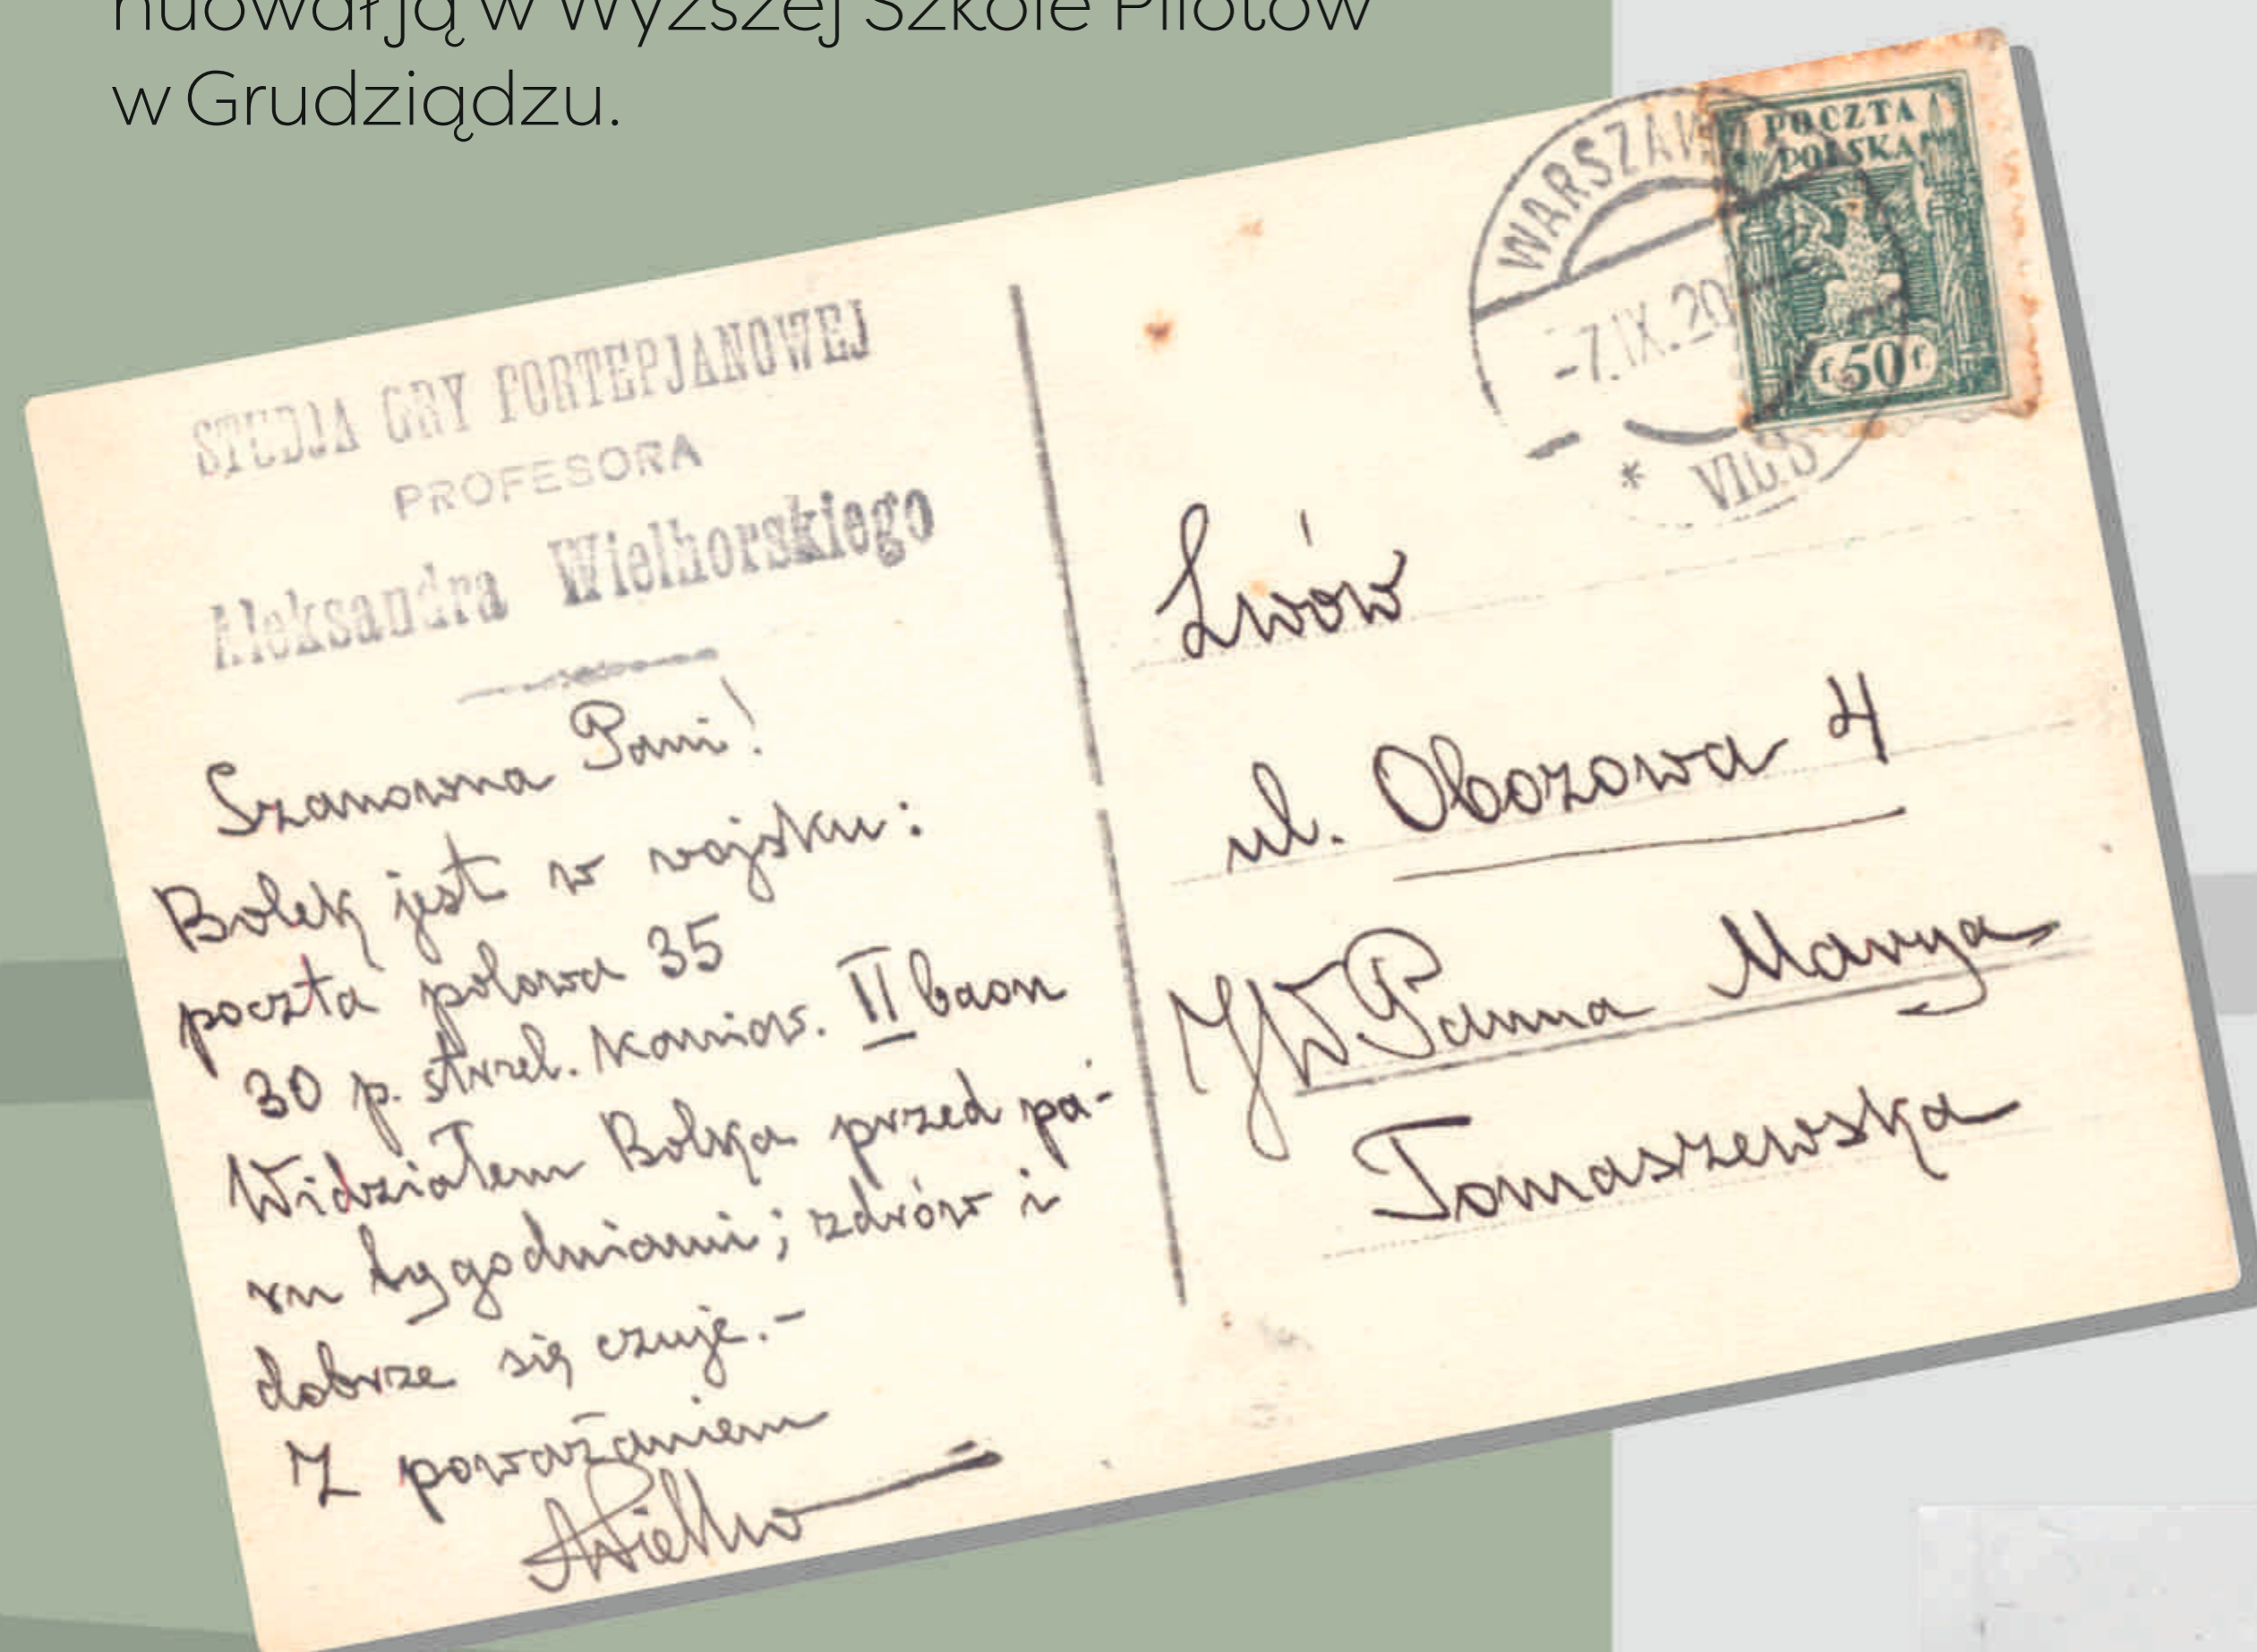 nuował ją w Wyższej Szkole Pilotów
w Grudziądzu.
STUDJA GRY FORTEPJANOWEJ
PROFESORA
Aleksandra Wielhorskiego
Szanowna Pani!
Bolek jest w wojsku:
poczta polowa 35
30 p. strzel. Kaniow. II baon
Widziałem Bolka przed pa-
ru tygodniami; zdrów i
dobrze się czuje.-
Z poważaniem
AWielho
WARSZAW
-7.IX.20
* VIII.S
POCZTA
POLSKA
f.50f.
Lwów
ul. Obozowa 4
JW Panna Marya
Tomaszewska